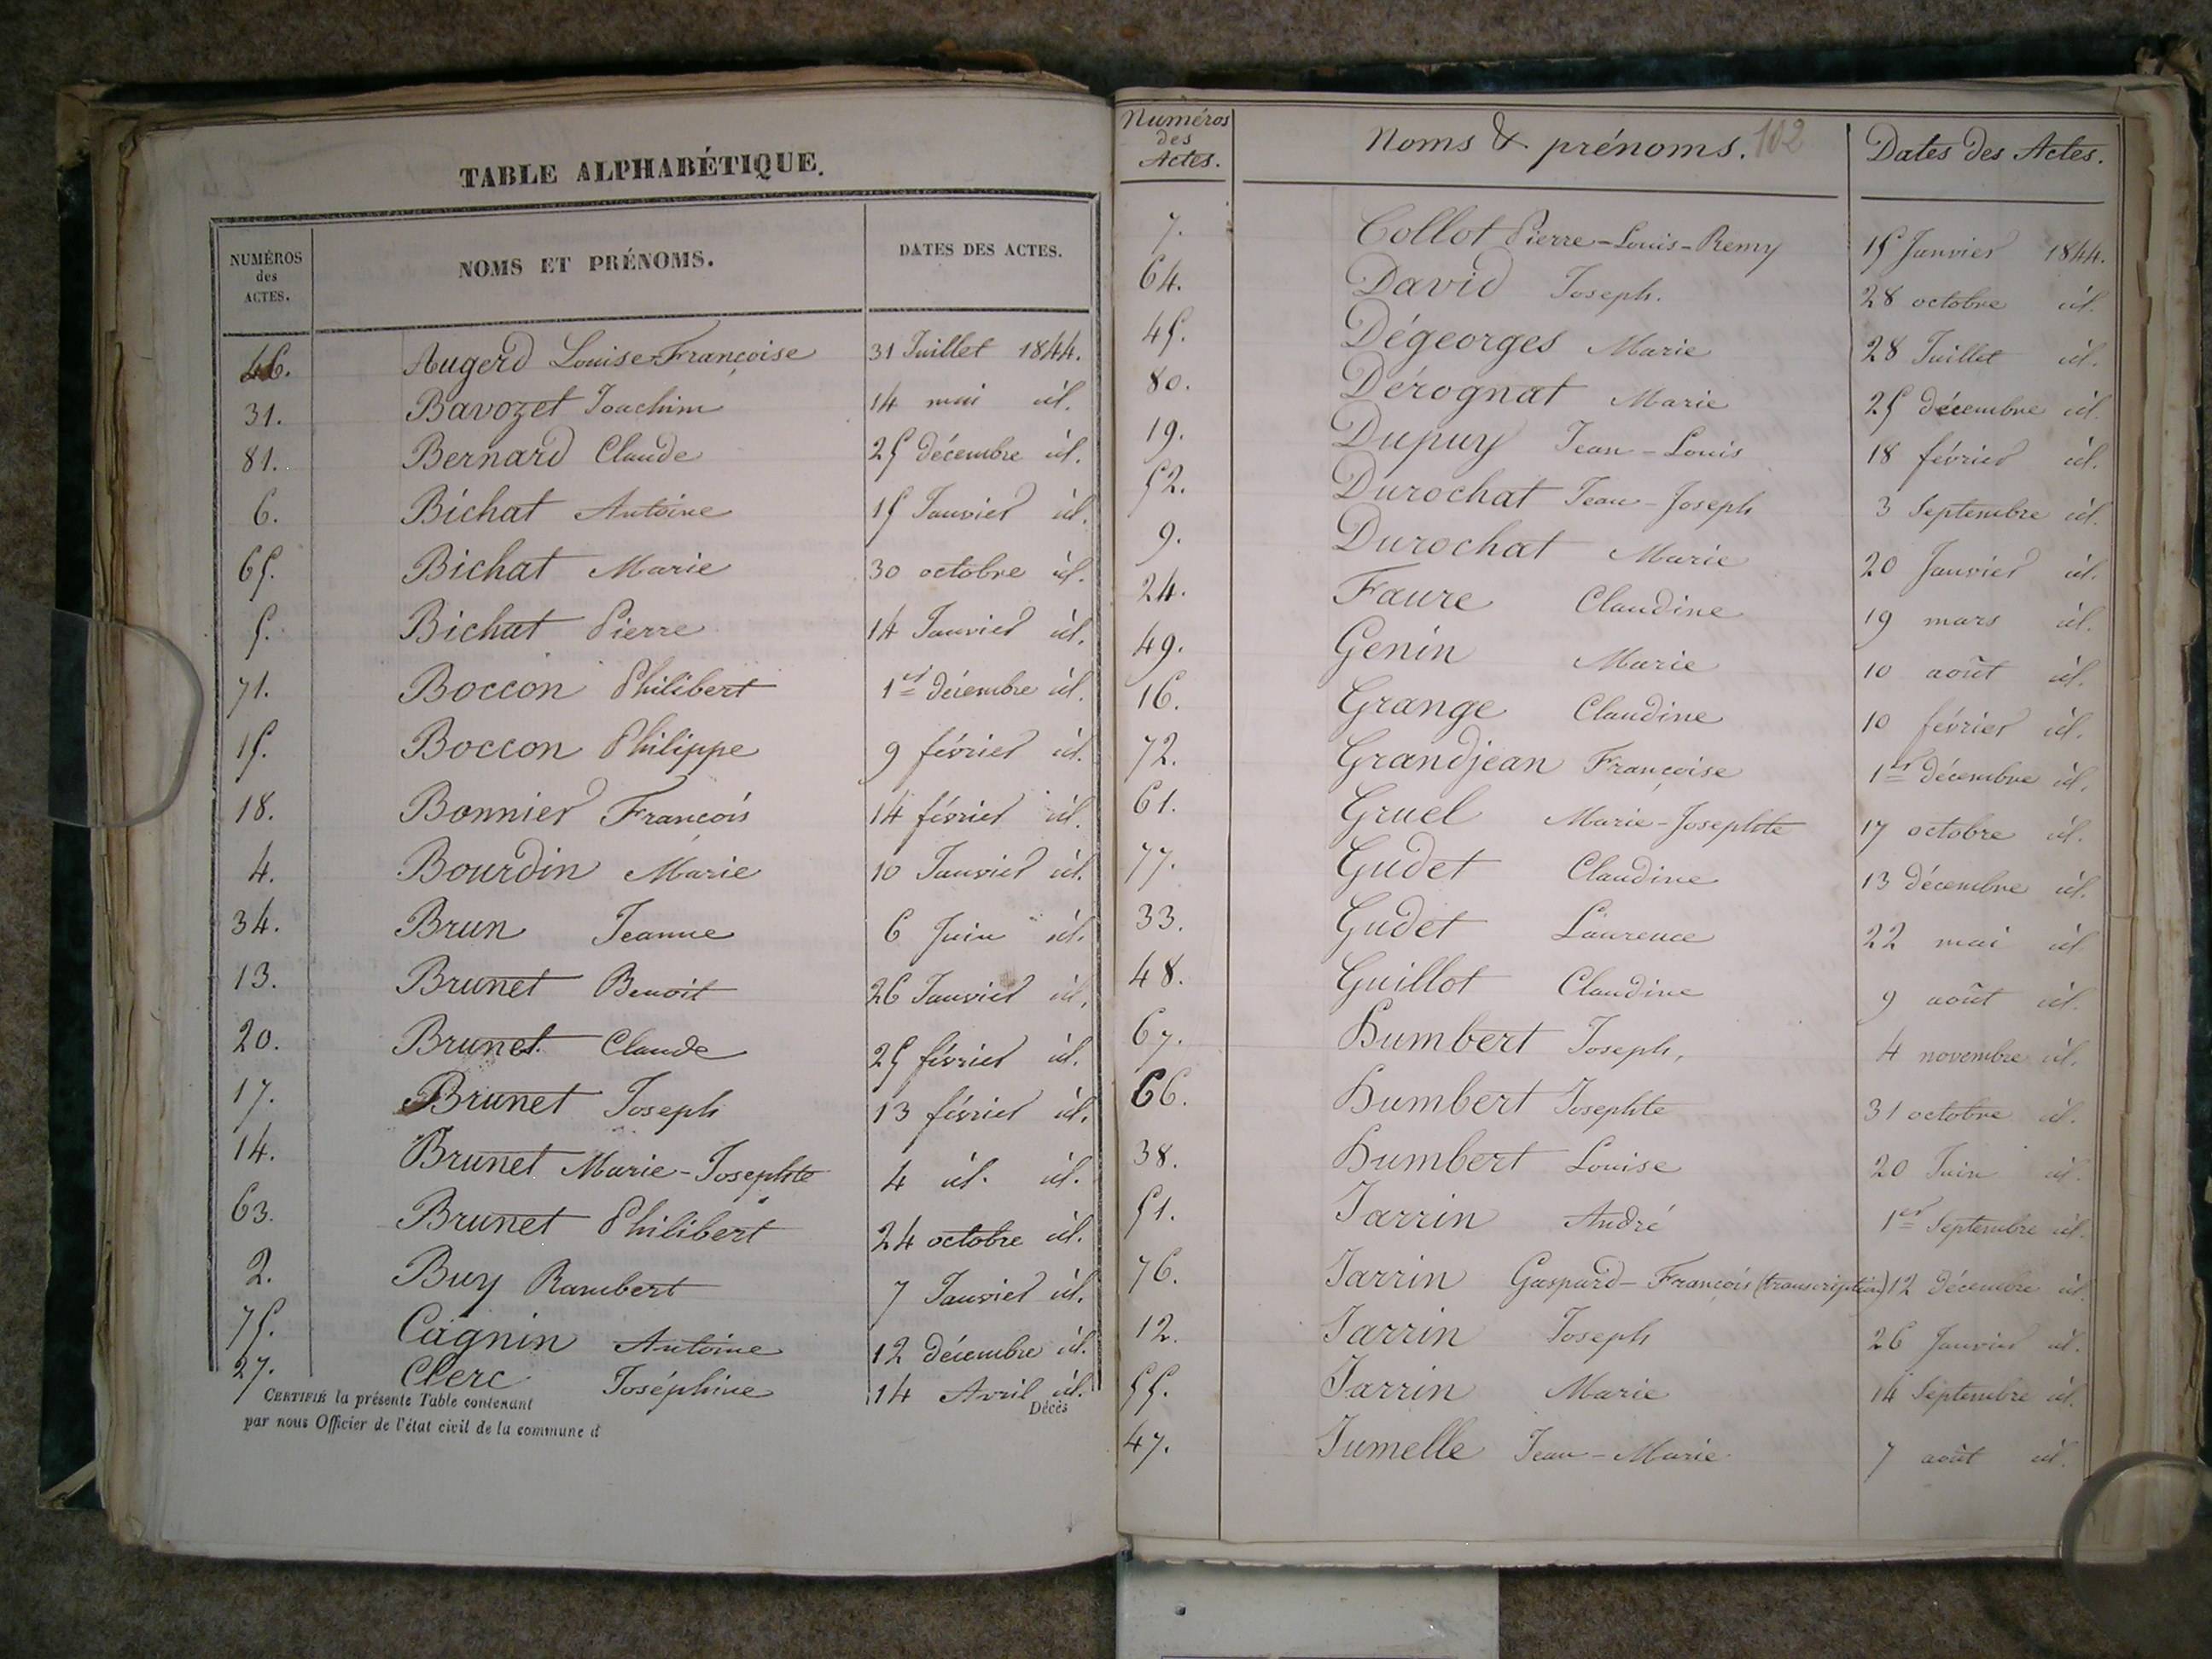 TABLE ALPHABÉTIQUE.
NUMÉROS des ACTES. NOMS ET PRÉNOMS. DATES DES ACTES.
46. Augerd Louise-Françoise 31 Juillet 1844.
31. Bavozet Joachim 14 mai id.
81. Bernard Claude 25 décembre id.
6. Bichat Antoine 15 Janvier id.
65. Bichat Marie 30 octobre id.
5. Bichat Pierre 14 Janvier id.
71. Boccon Philibert 1er décembre id.
15. Boccon Philippe 9 février id.
18. Bonnier François 14 février id.
4. Bourdin Marie 10 Janvier id.
34. Brun Jeanne 6 Juin id.
13. Brunet Benoit 26 Janvier id.
20. Brunet Claude 25 février id.
17. Brunet Joseph 13 février id.
14. Brunet Marie-Josephte 4 id. id.
63. Brunet Philibert 24 octobre id.
2. Buy Rambert 7 Janvier id.
75. Cagnin Antoine 12 décembre id.
27. Clerc Joséphine 14 Avril id.
CERTIFIÉ la présente Table contenant Décès
par nous Officier de l'état civil de la commune d
Numéros des Actes. Noms & prénoms. 102 Dates des Actes.
7. Collot Pierre-Louis-Remy 15 Janvier 1844.
64. David Joseph. 28 octobre id.
45. Dégeorges Marie 28 Juillet id.
80. Dérognat Marie 25 décembre id.
19. Dupuy Jean-Louis 18 février id.
52. Durochat Jean-Joseph 3 Septembre id.
9. Durochat Marie 20 Janvier id.
24. Faure Claudine 19 mars id.
49. Genin Marie 10 août id.
16. Grange Claudine 10 février id.
72. Grandjean Françoise 1er décembre id.
61. Gruel Marie-Josephte 17 octobre id.
77. Gudet Claudine 13 décembre id.
33. Gudet Laurence 22 mai id
48. Guillot Claudine 9 août id.
67. Humbert Joseph, 4 novembre id.
66. Humbert Josephte 31 octobre id.
38. Humbert Louise 20 Juin id.
51. Jarrin André 1er Septembre id.
76. Jarrin Gaspard-François (transcription) 12 décembre id.
12. Jarrin Joseph 26 Janvier id.
55. Jarrin Marie 14 Septembre id.
47. Jumelle Jean-Marie 7 août id.